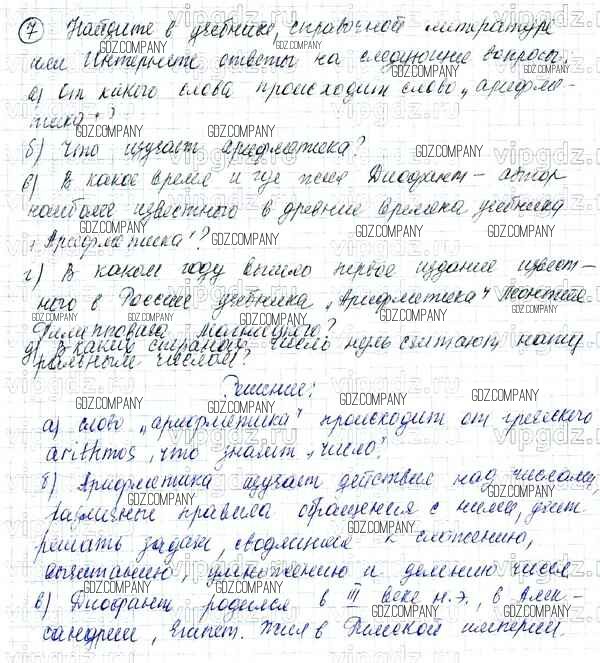 7 Найдите в учебнике, справочной литературе
или Интернете ответы на следующие вопросы:
а) От какого слова происходит слово „арифме-
тика"?
б) Что изучает арифметика?
в) В какое время и где жил Диофант – автор
наиболее известного в древние времена учебника
„Арифметика"?
г) В каком году вышло первое издание извест-
ного в России учебника „Арифметика" Леонтия
Филипповича Магницкого?
д) В каких странах число нуль считают нату
ральным числом?
Решение:
а) слово „арифметика" происходит от греческого
arithmos, что значит „число".
б) Арифметика изучает действия над числами,
различные правила обращения с ними, учит
решать задачи, сводящиеся к сложению,
вычитанию, умножению и делению чисел
в) Диофант родился в III веке н.э., в Алек-
сандрии, Египет. Жил в Римской империи.